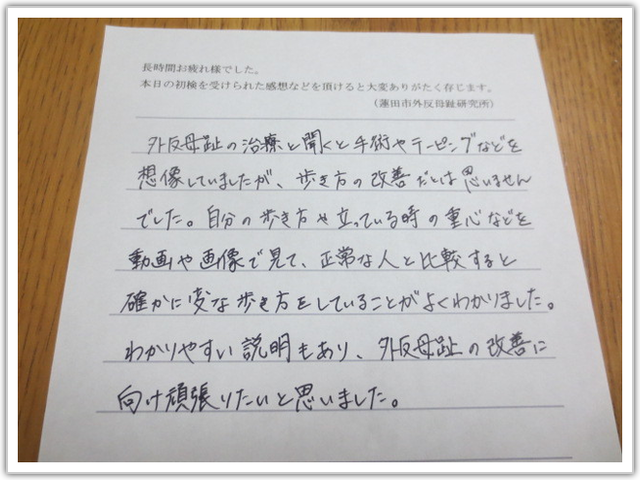 長時間お疲れ様でした。
本日の初検を受けられた感想などを頂けると大変ありがたく存じます。
（蓮田市外反母趾研究所）
外反母趾の治療と聞くと手術やテーピングなどを
想像していましたが、歩き方の改善だとは思いません
でした。自分の歩き方や立っている時の重心などを
動画や画像で見て、正常な人と比較すると
確かに変な歩き方をしていることがよくわかりました。
わかりやすい説明もあり、外反母趾の改善に
向け頑張りたいと思いました。